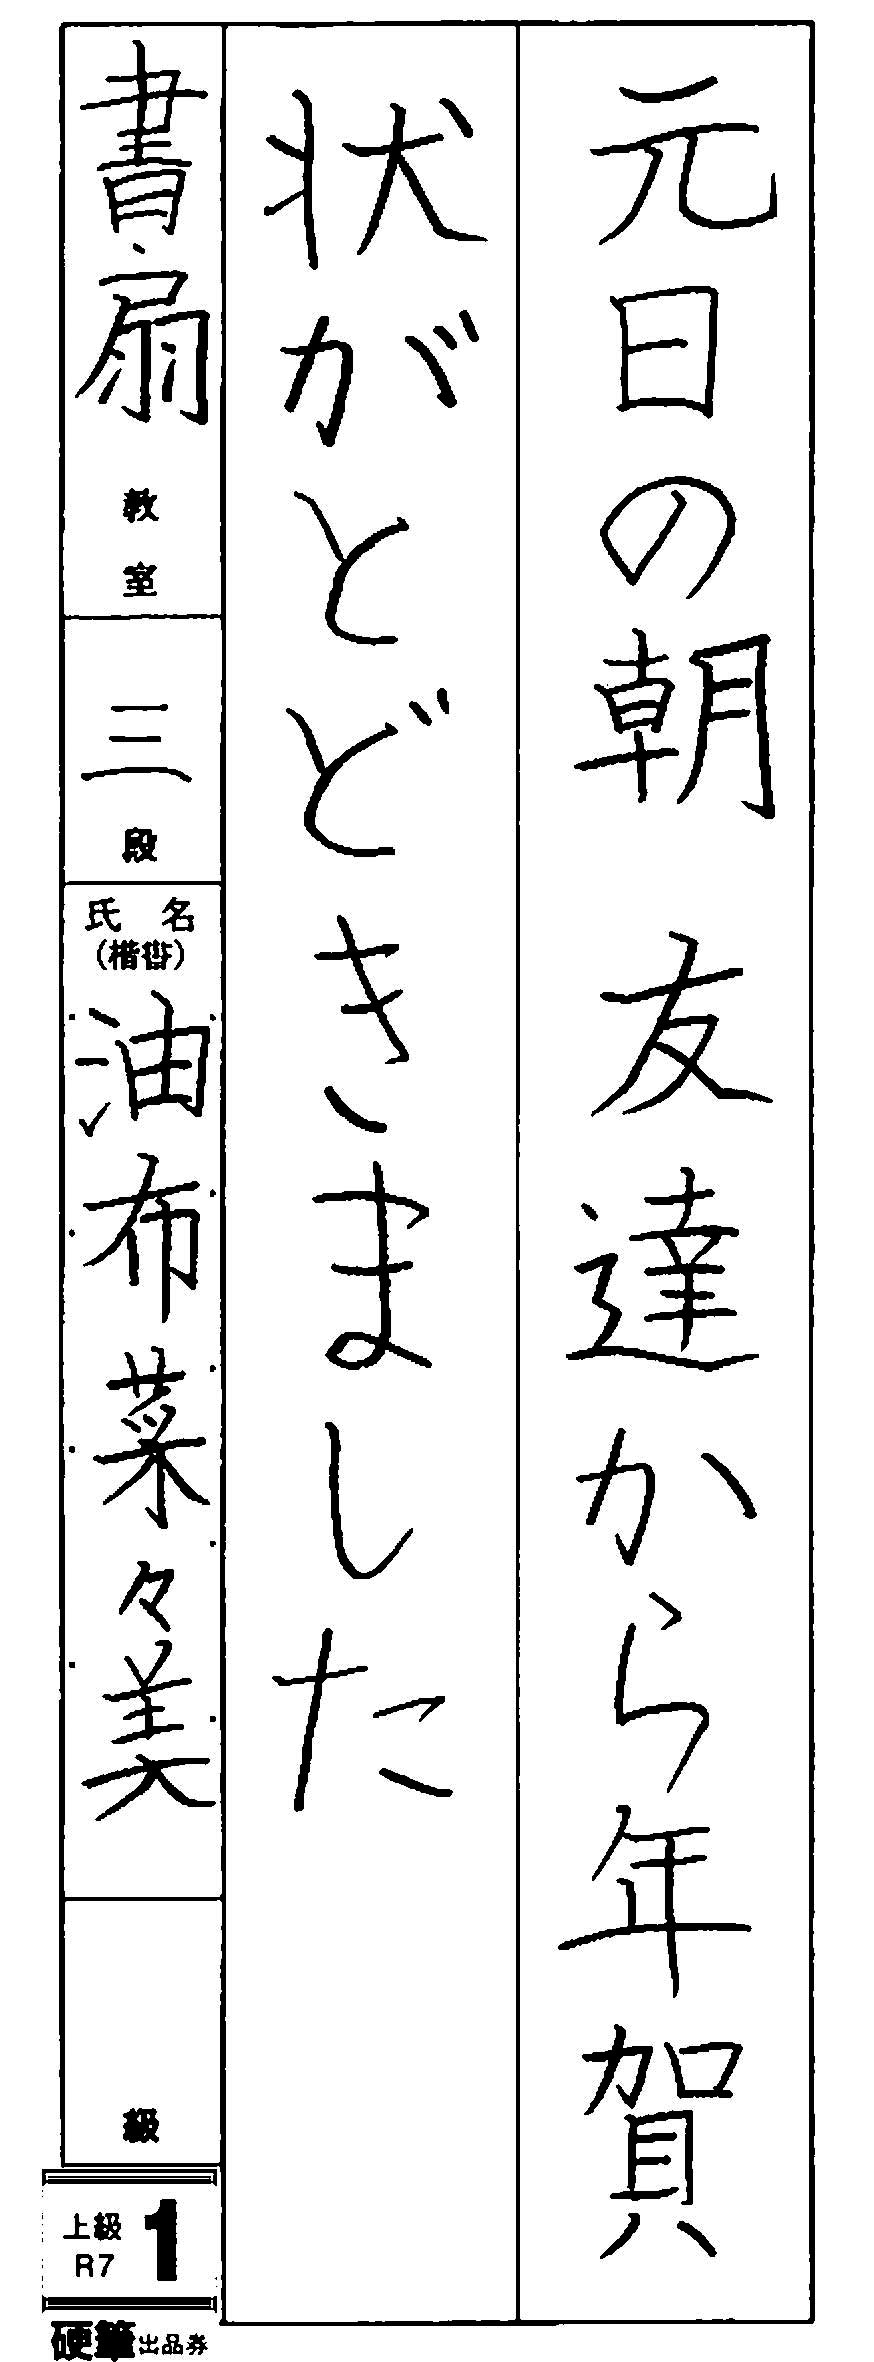 元日の朝 友達から年賀
状がとどきました
書扇
教室
三
段
氏名
(楷書)
油布菜々美
級
上級
R7
1
硬筆出品券